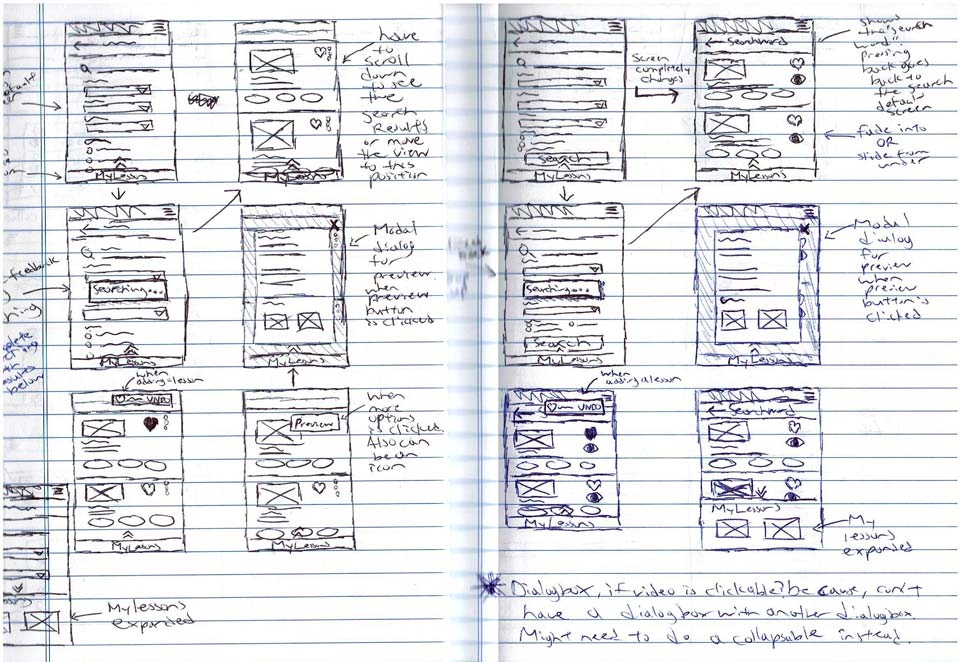 have
to
scroll
down
to see
the
search
Results
or move
the view
to this
position
My Lessons
feedback
Searching...
My Lessons
Modal
dialog
for
preview.
when
preview
button
is clicked
My Lessons
when
adding a lesson
UNDO
My Lessons
Preview
when
more
options
is clicked.
Also can
be an
icon
My Lessons
below
My lessons
expanded
Search
My Lessons
Screen
completely
changes
Searchword
My Lessons
shows
the "search
word".
pressing
back goes
back to
the search
default
screen
fade into
OR
slide from
under
Searching...
Search
My Lessons
Modal
dialog
for
preview
when
preview
button is
clicked
My Lessons
when
adding a lesson
UNDO
My Lessons
Searchword
My Lessons
My
lessons
expanded
Dialogbox, if video is clickable? because, can't
have a dialogbox with another dialogbox.
Might need to do a collapsable instead.